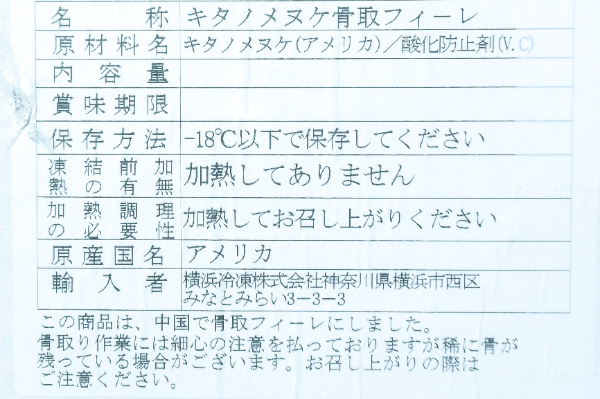 名称 キタノメヌケ骨取フィーレ
原材料名 キタノメヌケ(アメリカ)／酸化防止剤(V.C)
内容量
賞味期限
保存方法 -18℃以下で保存してください
凍結前加
熱の有無 加熱してありません
加熱調理
の必要性 加熱してお召し上がりください
原産国名 アメリカ
輸入者 横浜冷凍株式会社神奈川県横浜市西区
みなとみらい3-3-3
この商品は、中国で骨取フィーレにしました。
骨取り作業には細心の注意を払っておりますが稀に骨が
残っている場合がございます。お召し上がりの際は
ご注意ください。